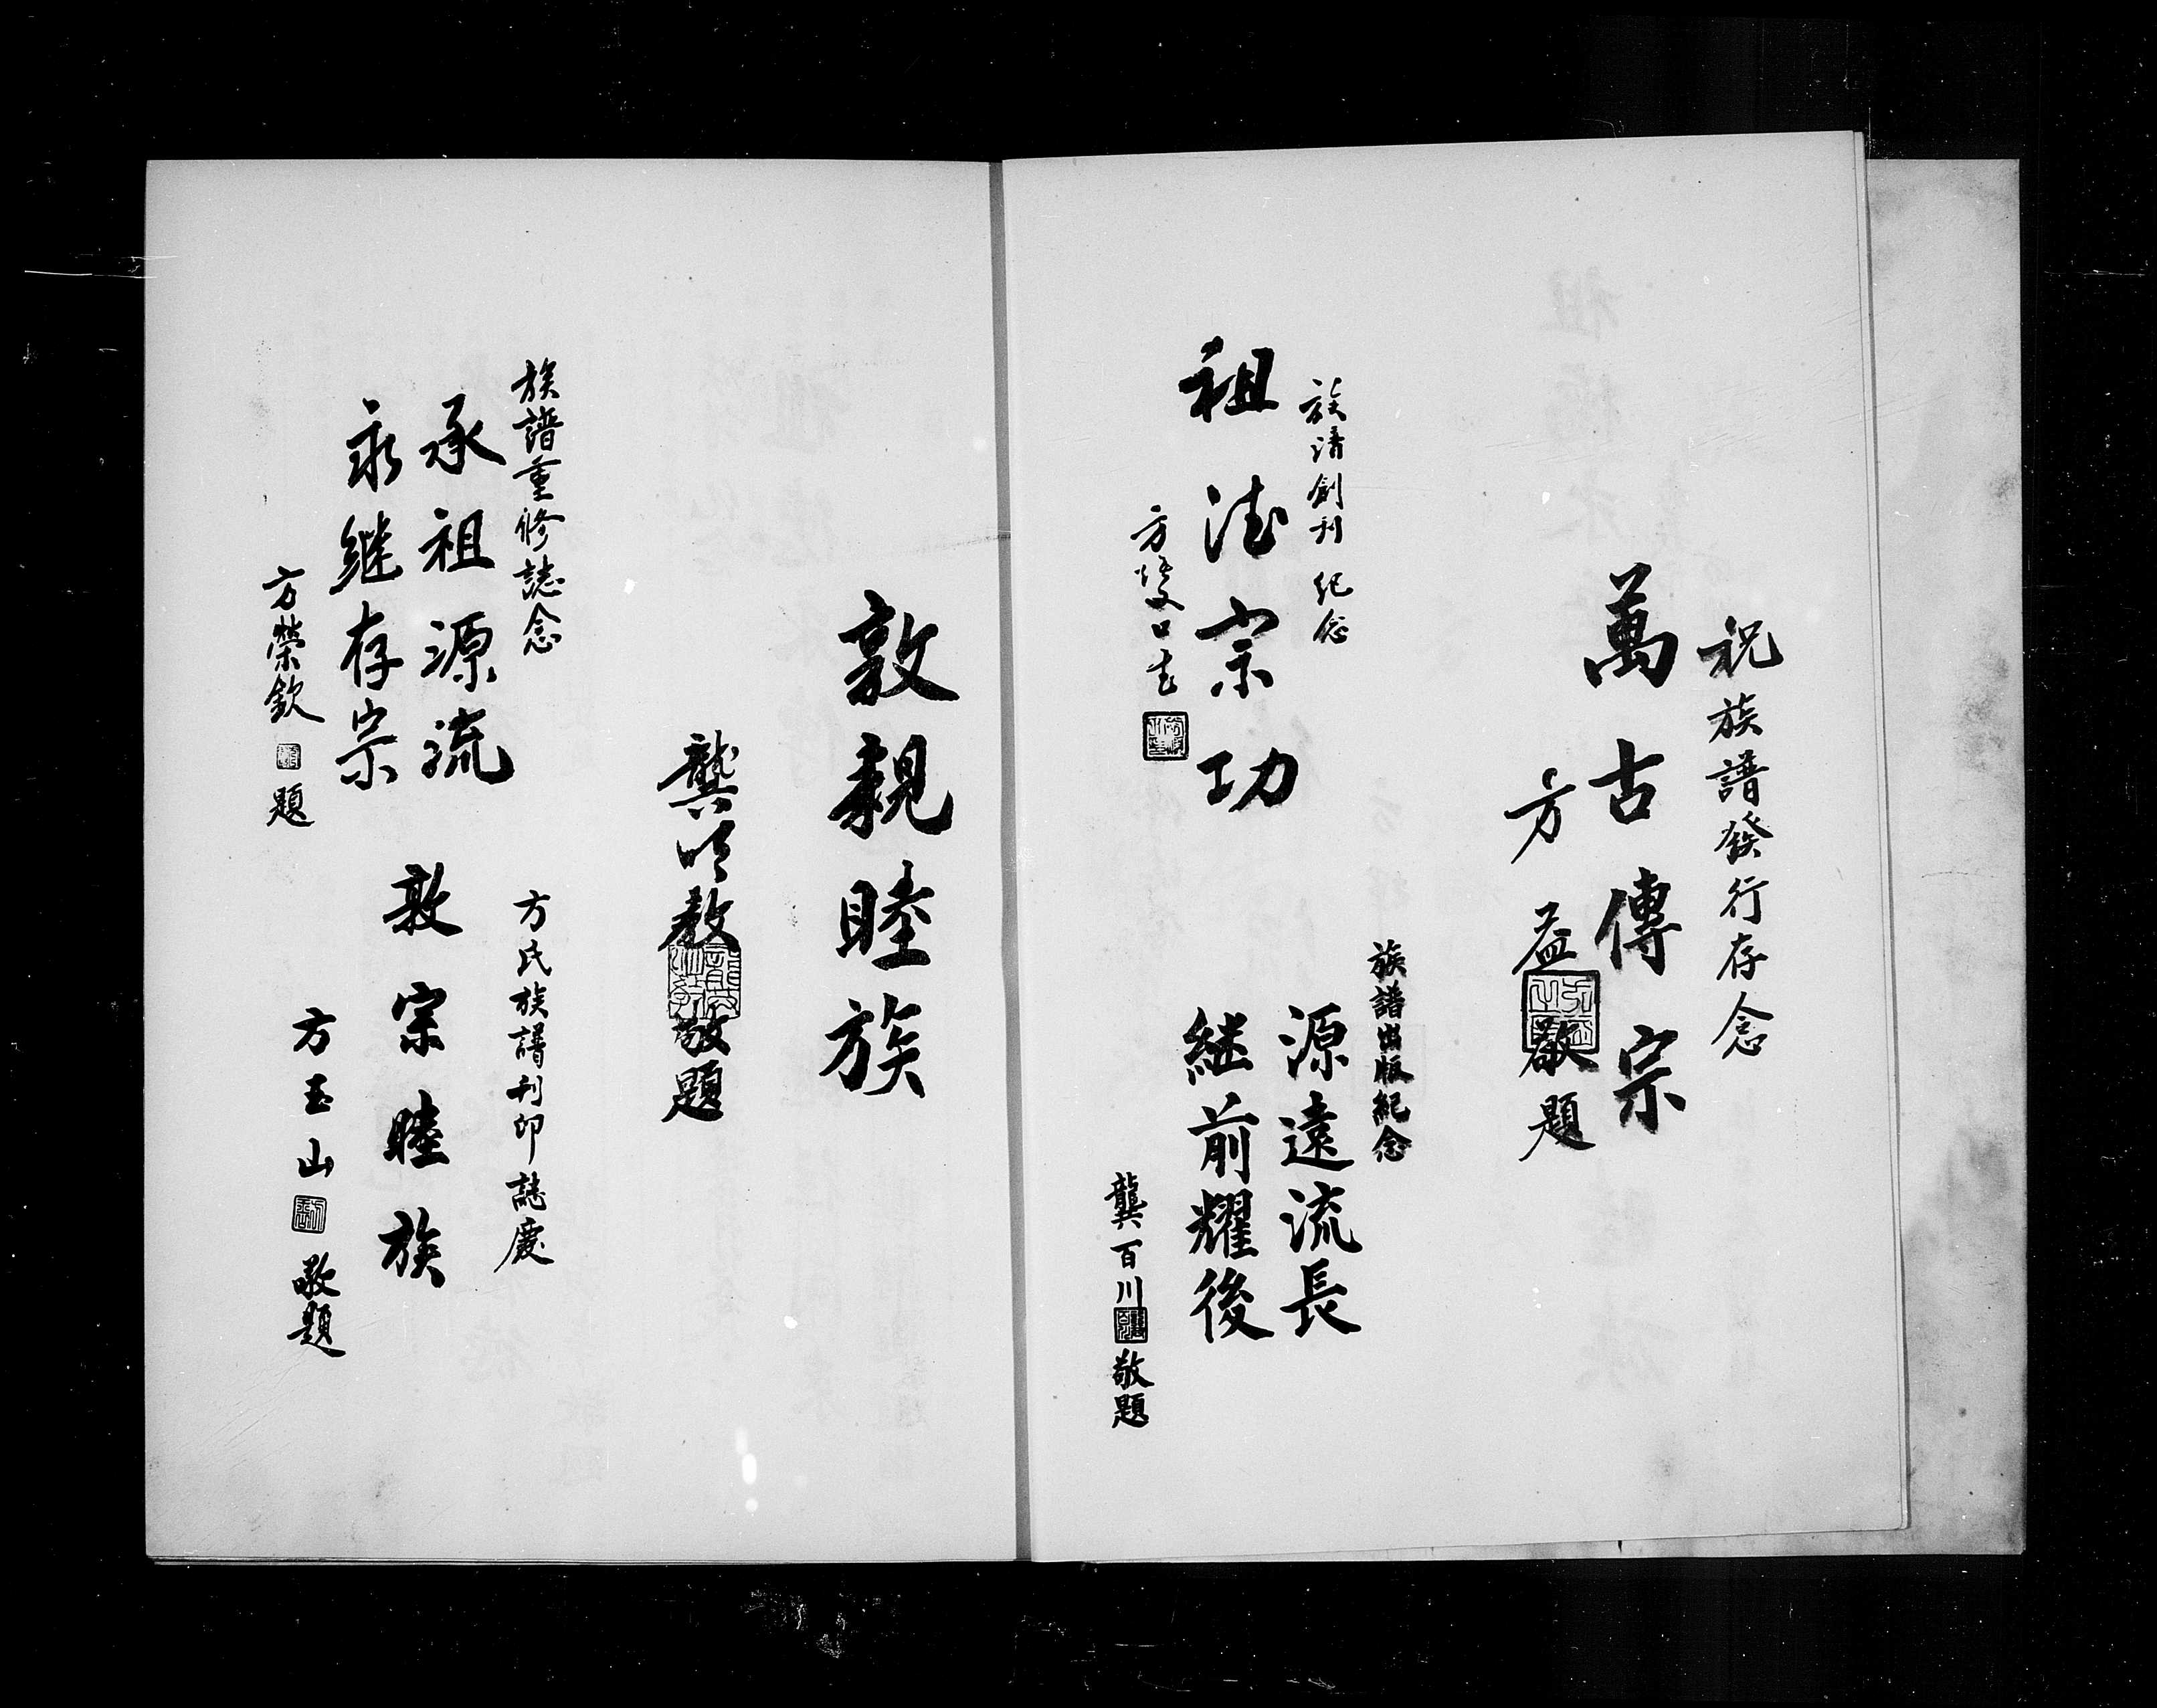 祝族譜發行存念
萬古傳宗
方益敬題
族譜創刊紀念
祖德宗功
方
族譜出版紀念
源遠流長
繼前耀後
龔百川敬題
敦親睦族
龔明教敬題
族譜重修誌念
承祖源流
永继存宗
方榮欽題
方氏族譜刊印誌慶
敦宗睦族
方玉山敬題